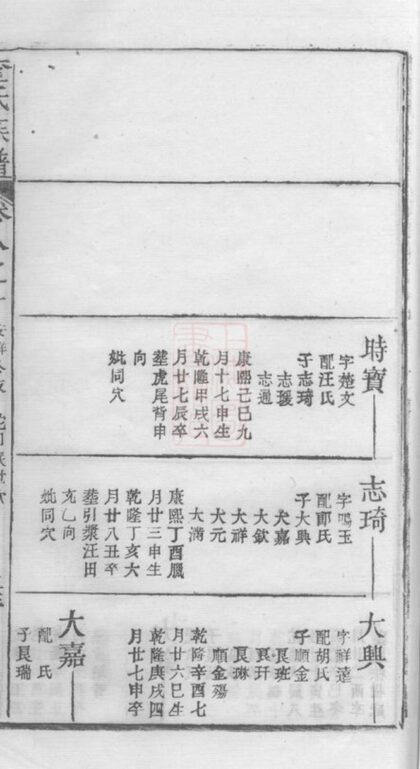 時寶
字楚文
配汪氏
子志琦
志瑗
志通
康熙己巳九
月十七申生
乾隆甲戌六
月廿七辰卒
塟虎尾背申
向
妣同穴
志琦
字鳴玉
配鄭氏
子大興
大嘉
大欽
大祥
大元
大滿
康熙丁酉臘
月廿三申生
乾隆丁亥六
月廿八丑卒
塟引漿汪田
亥乙向
妣同穴
大興
字祥達
配胡氏
子順金
良班
良玕
良琳
順金殤
乾隆辛酉七
月廿六巳生
乾隆庚戌四
月廿七申卒
大嘉
配 氏
子良瑞
氏族譜
卷八之